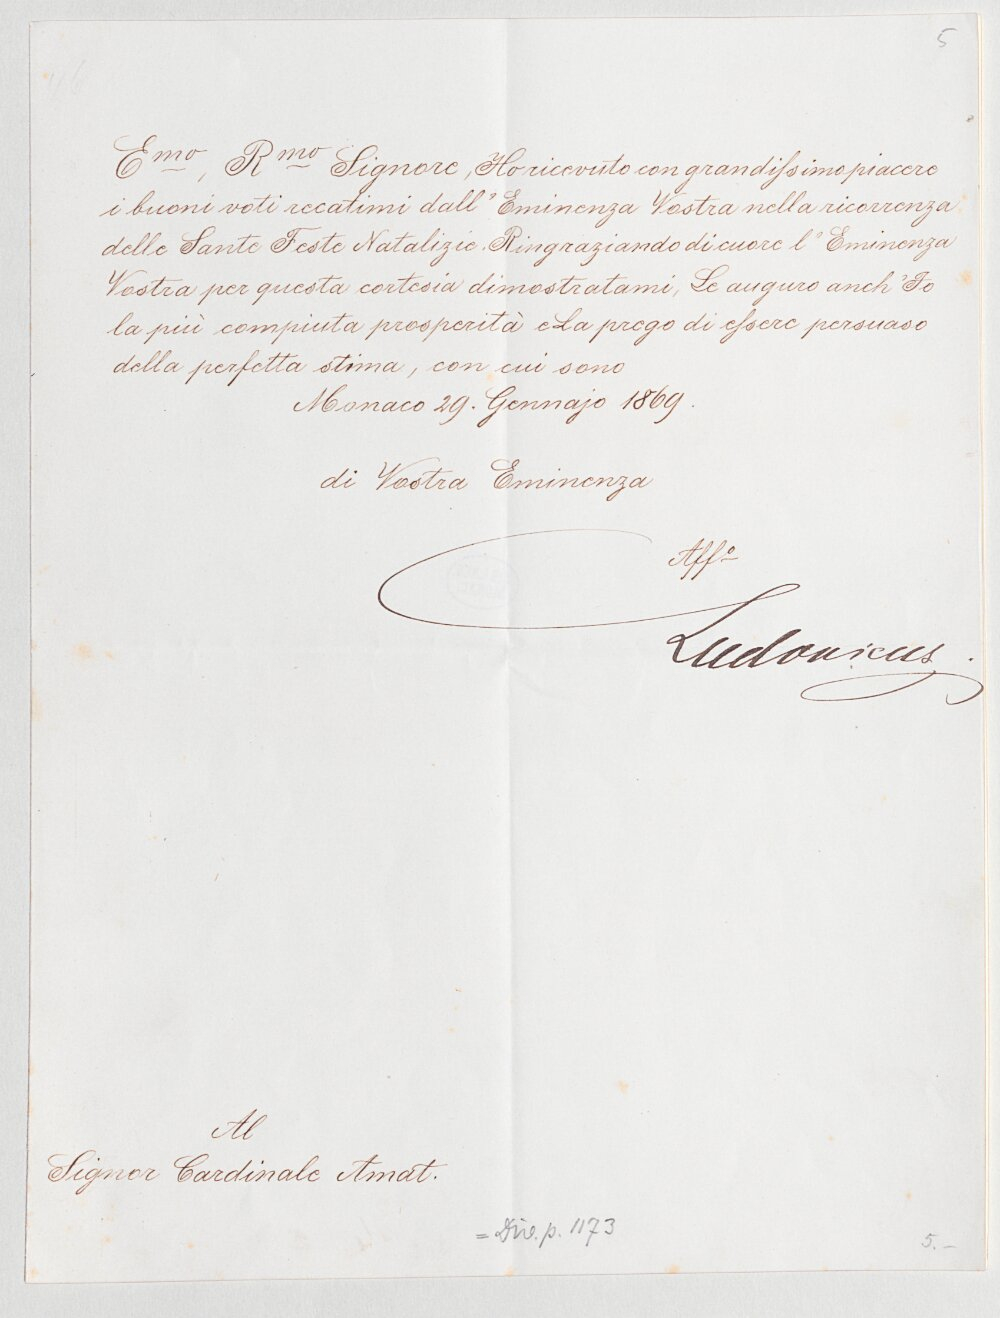 5
Emo, Rmo Signore, Ho ricevuto con grandissimo piacere
i buoni voti recatimi dall'Eminenza Vostra nella ricorrenza
delle Sante Feste Natalizie. Ringraziando di cuore l'Eminenza
Vostra per questa cortesia dimostratami, Le auguro anch'Io
la più compiuta prosperità e La prego di essere persuaso
della perfetta stima, con cui sono
Monaco 29. Gennajo 1869.
di Vostra Eminenza
Affo
Ludovicus.
Al
Signor Cardinale Amat.
= Div. p. 1173
5.–